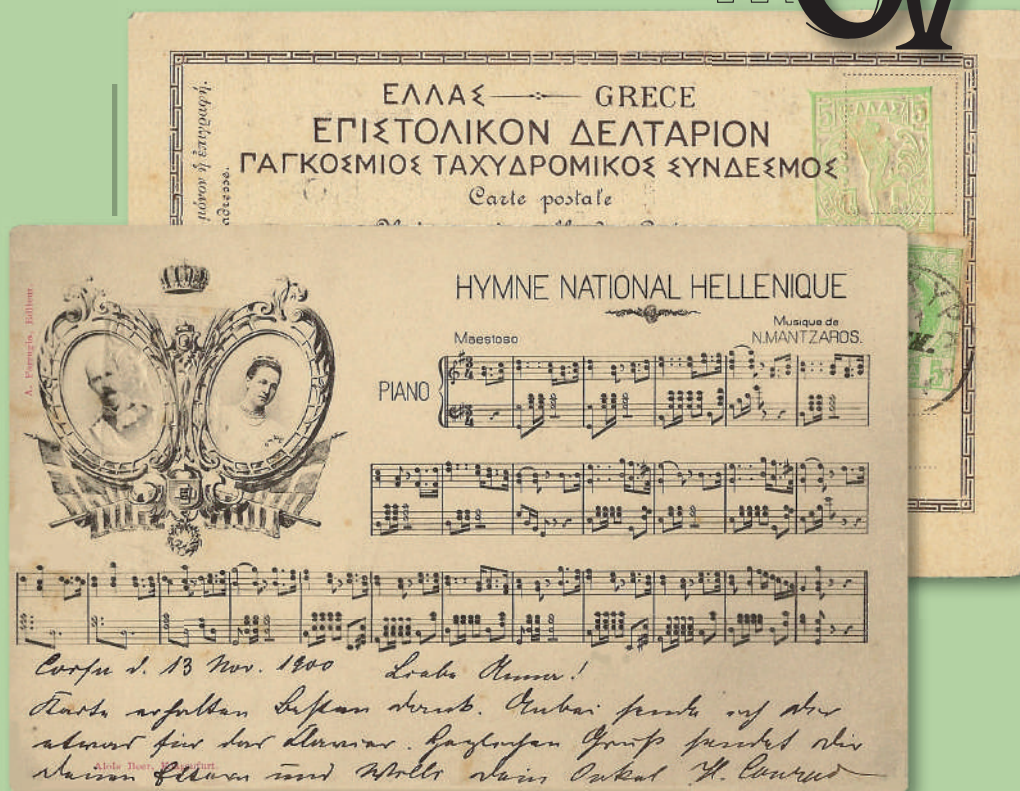 ΕΛΛΑΣ GRECE
ΕΠΙΣΤΟΛΙΚΟΝ ΔΕΛΤΑΡΙΟΝ
ΠΑΓΚΟΣΜΙΟΣ ΤΑΧΥΔΡΟΜΙΚΟΣ ΣΥΝΔΕΣΜΟΣ
Carte postale
5 ΕΛΛΑΣ 5
HYMNE NATIONAL HELLENIQUE
Maestoso
Musique de
N. MANTZAROS.
PIANO
Corfu d. 13 Nov. 1900 Liebe Anna!
Karte erhalten besten Dank. Anbei sende ich dir
etwas für das Klavier. Herzlichen Gruß sendet dir
deinen Eltern und Willi dein Onkel H. Conrad
Alois Beer, Klagenfurt.